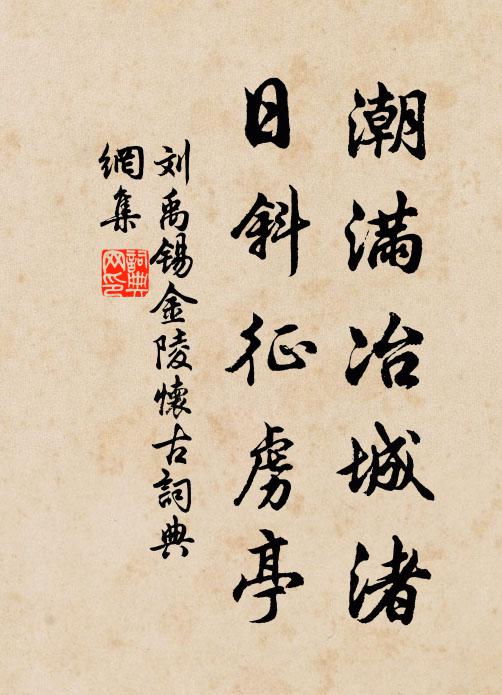 潮满冶城渚
日斜征虏亭
刘禹锡金陵懷古詞典
網集
詞典网印